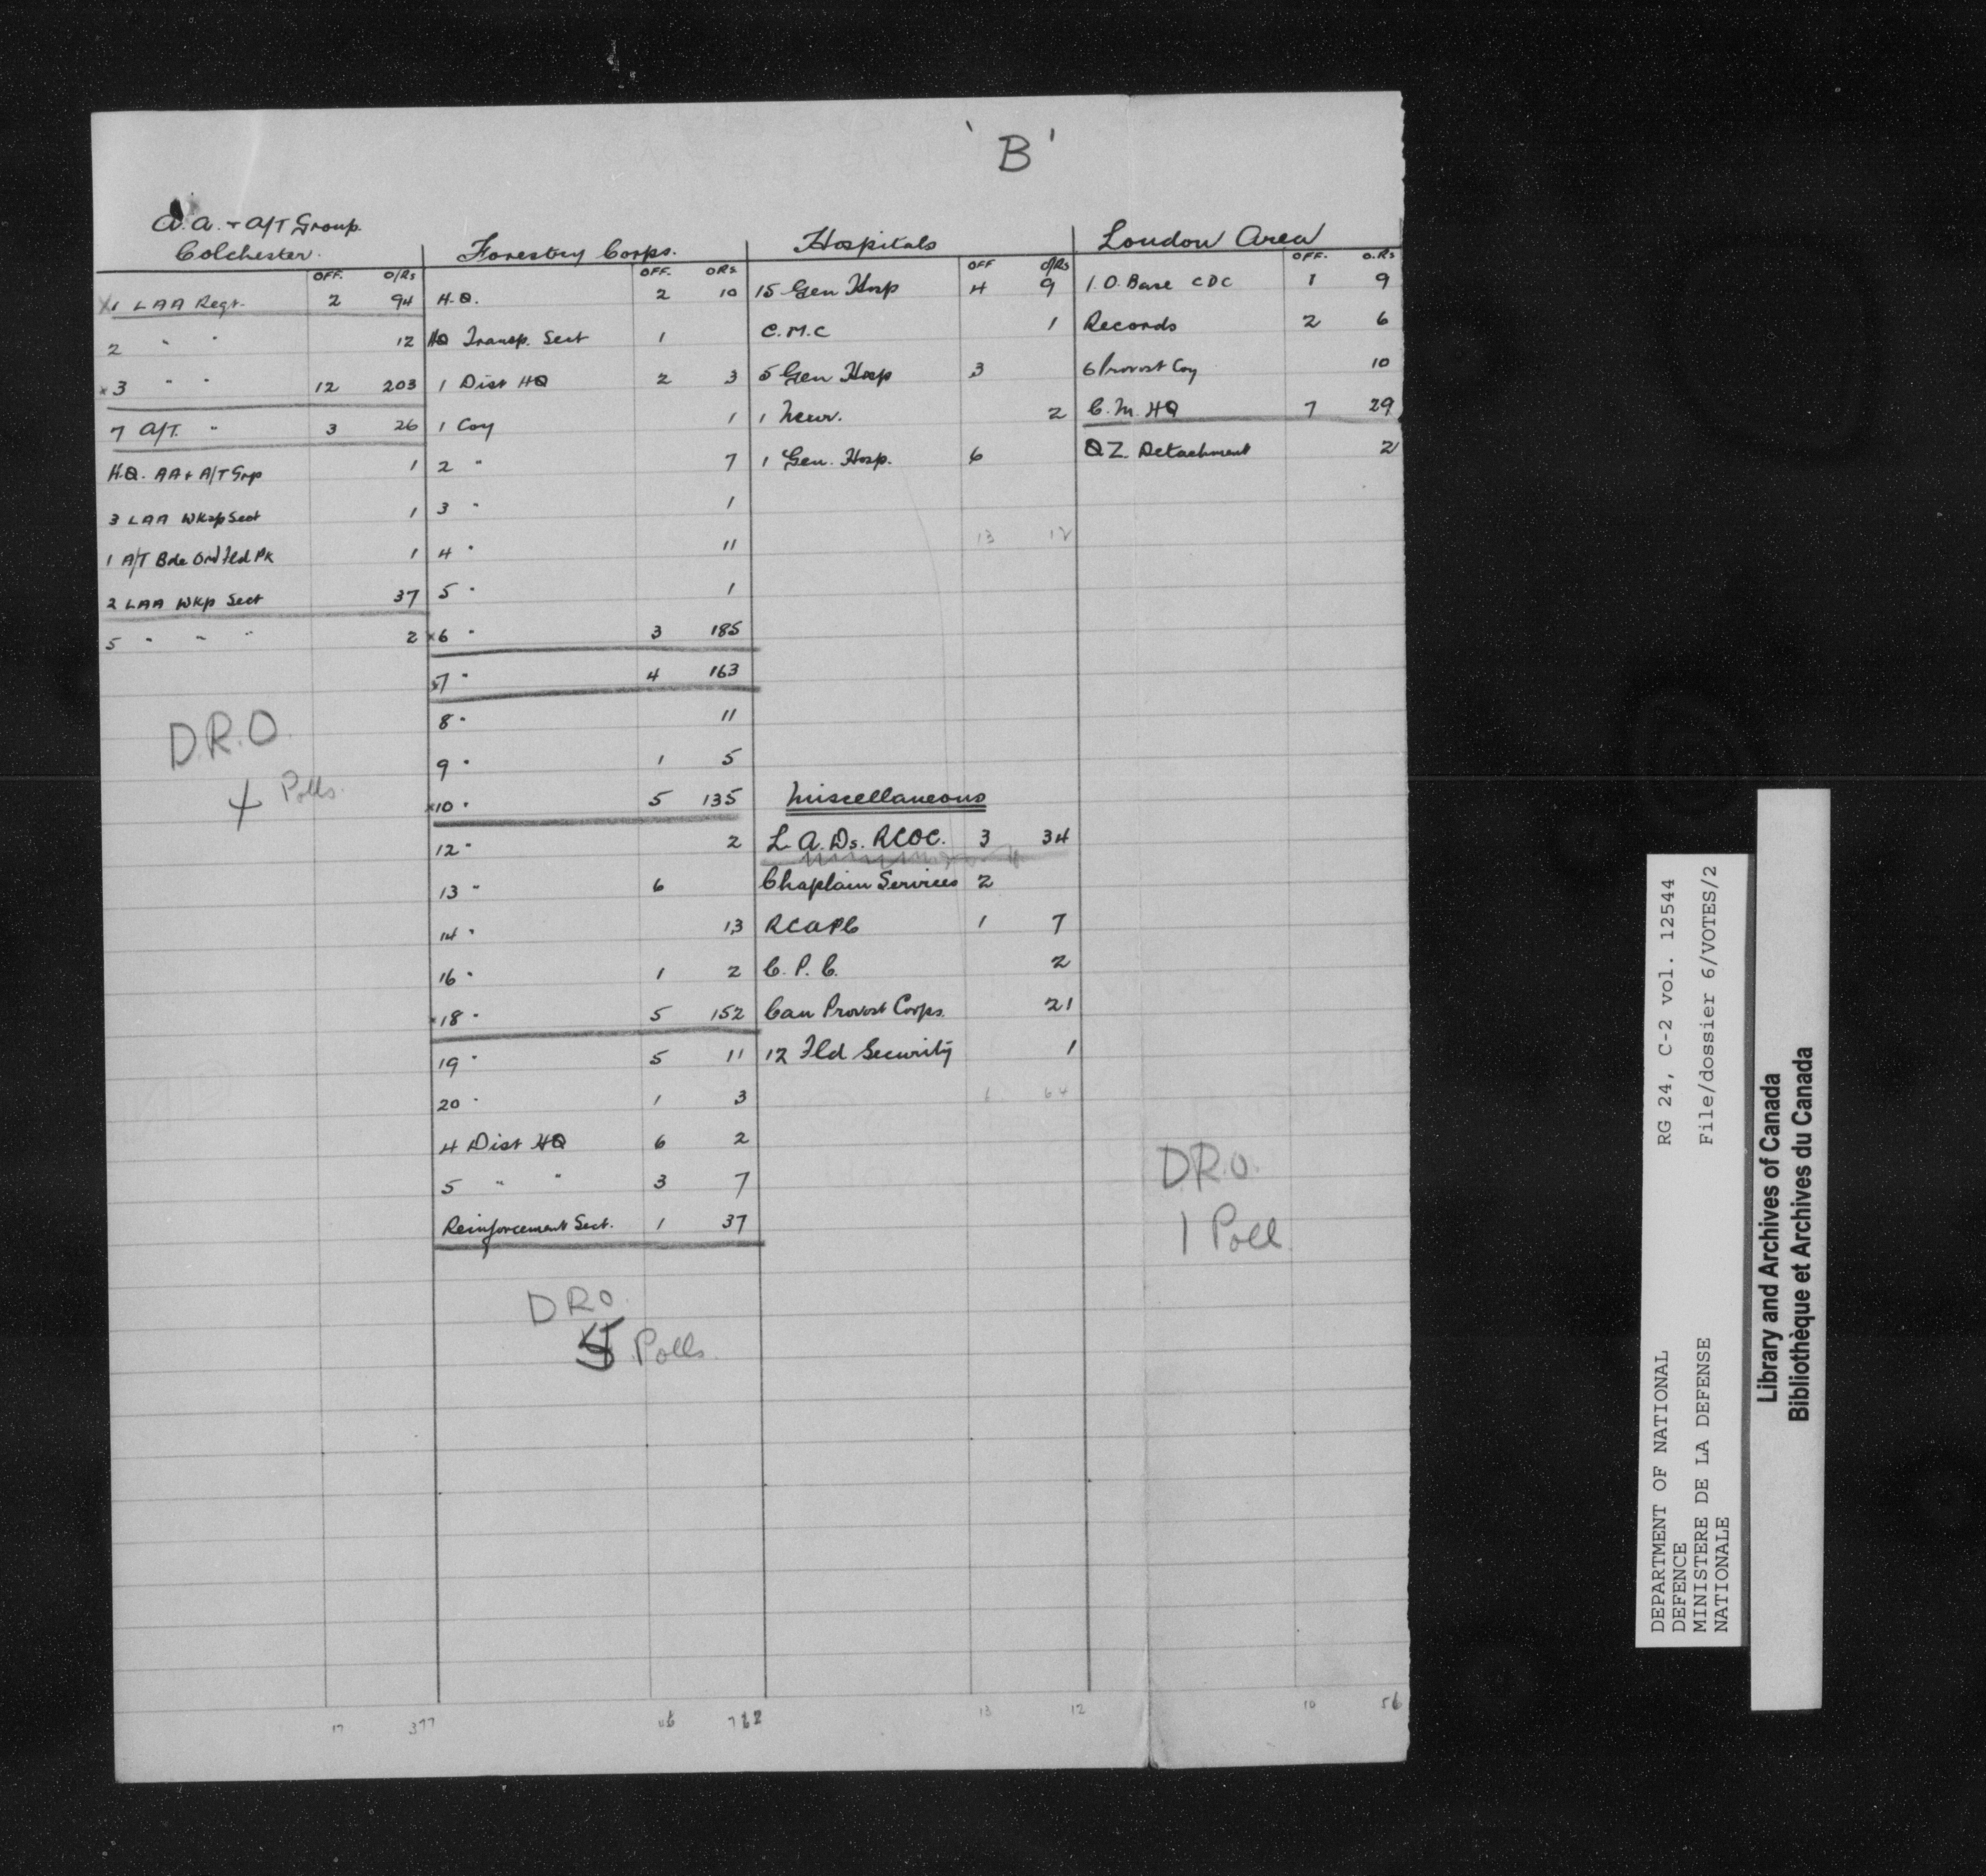 'B'
A.A. + A/T Group.
Colchester.
OFF. O/Rs
x1 LAA Regt. 2 94
2 " " 12
x3 " " 12 203
7 A/T. " 3 26
H.Q. AA + A/T Grp 1
3 LAA Wksp Sect 1
1 A/T Bde Ord Fld Pk 1
2 LAA Wkp Sect 37
5 " " " 2
D.R.O.
4 Polls.
17 377
Forestry Corps.
OFF. ORs
H.Q. 2 10
HQ Transp. Sect 1
1 Dist HQ 2 3
1 Coy 1
2 " 7
3 " 1
4 " 11
5 " 1
x6 " 3 185
x7 " 4 163
8 " 11
9 " 1 5
x10 " 5 135
12 " 2
13 " 6
14 " 13
16 " 1 2
x18 " 5 152
19 " 5 11
20 " 1 3
4 Dist HQ 6 2
5 " " 3 7
Reinforcement Sect. 1 37
DRO.
5 Polls.
46 762
Hospitals
OFF O/Rs
15 Gen Hosp 4 9
C.M.C 1
5 Gen Hosp 3
1 Neur. 2
1 Gen. Hosp. 6
13 12
Miscellaneous
L.A.Ds. RCOC. 3 34
Chaplain Services 2
RCAPC 1 7
C.P.C. 2
Can Provost Corps. 21
12 Fld Security 1
6 64
13 12
London Area
OFF. O.Rs
1.O. Base CDC 1 9
Records 2 6
6 Provost Coy 10
C.M.HQ 7 29
QZ. Detachment 2
D.R.O.
1 Poll
10 56
DEPARTMENT OF NATIONAL
DEFENCE
MINISTERE DE LA DEFENSE
NATIONALE
RG 24, C-2 vol. 12544
File/dossier 6/VOTES/2
Library and Archives of Canada
Bibliothèque et Archives du Canada